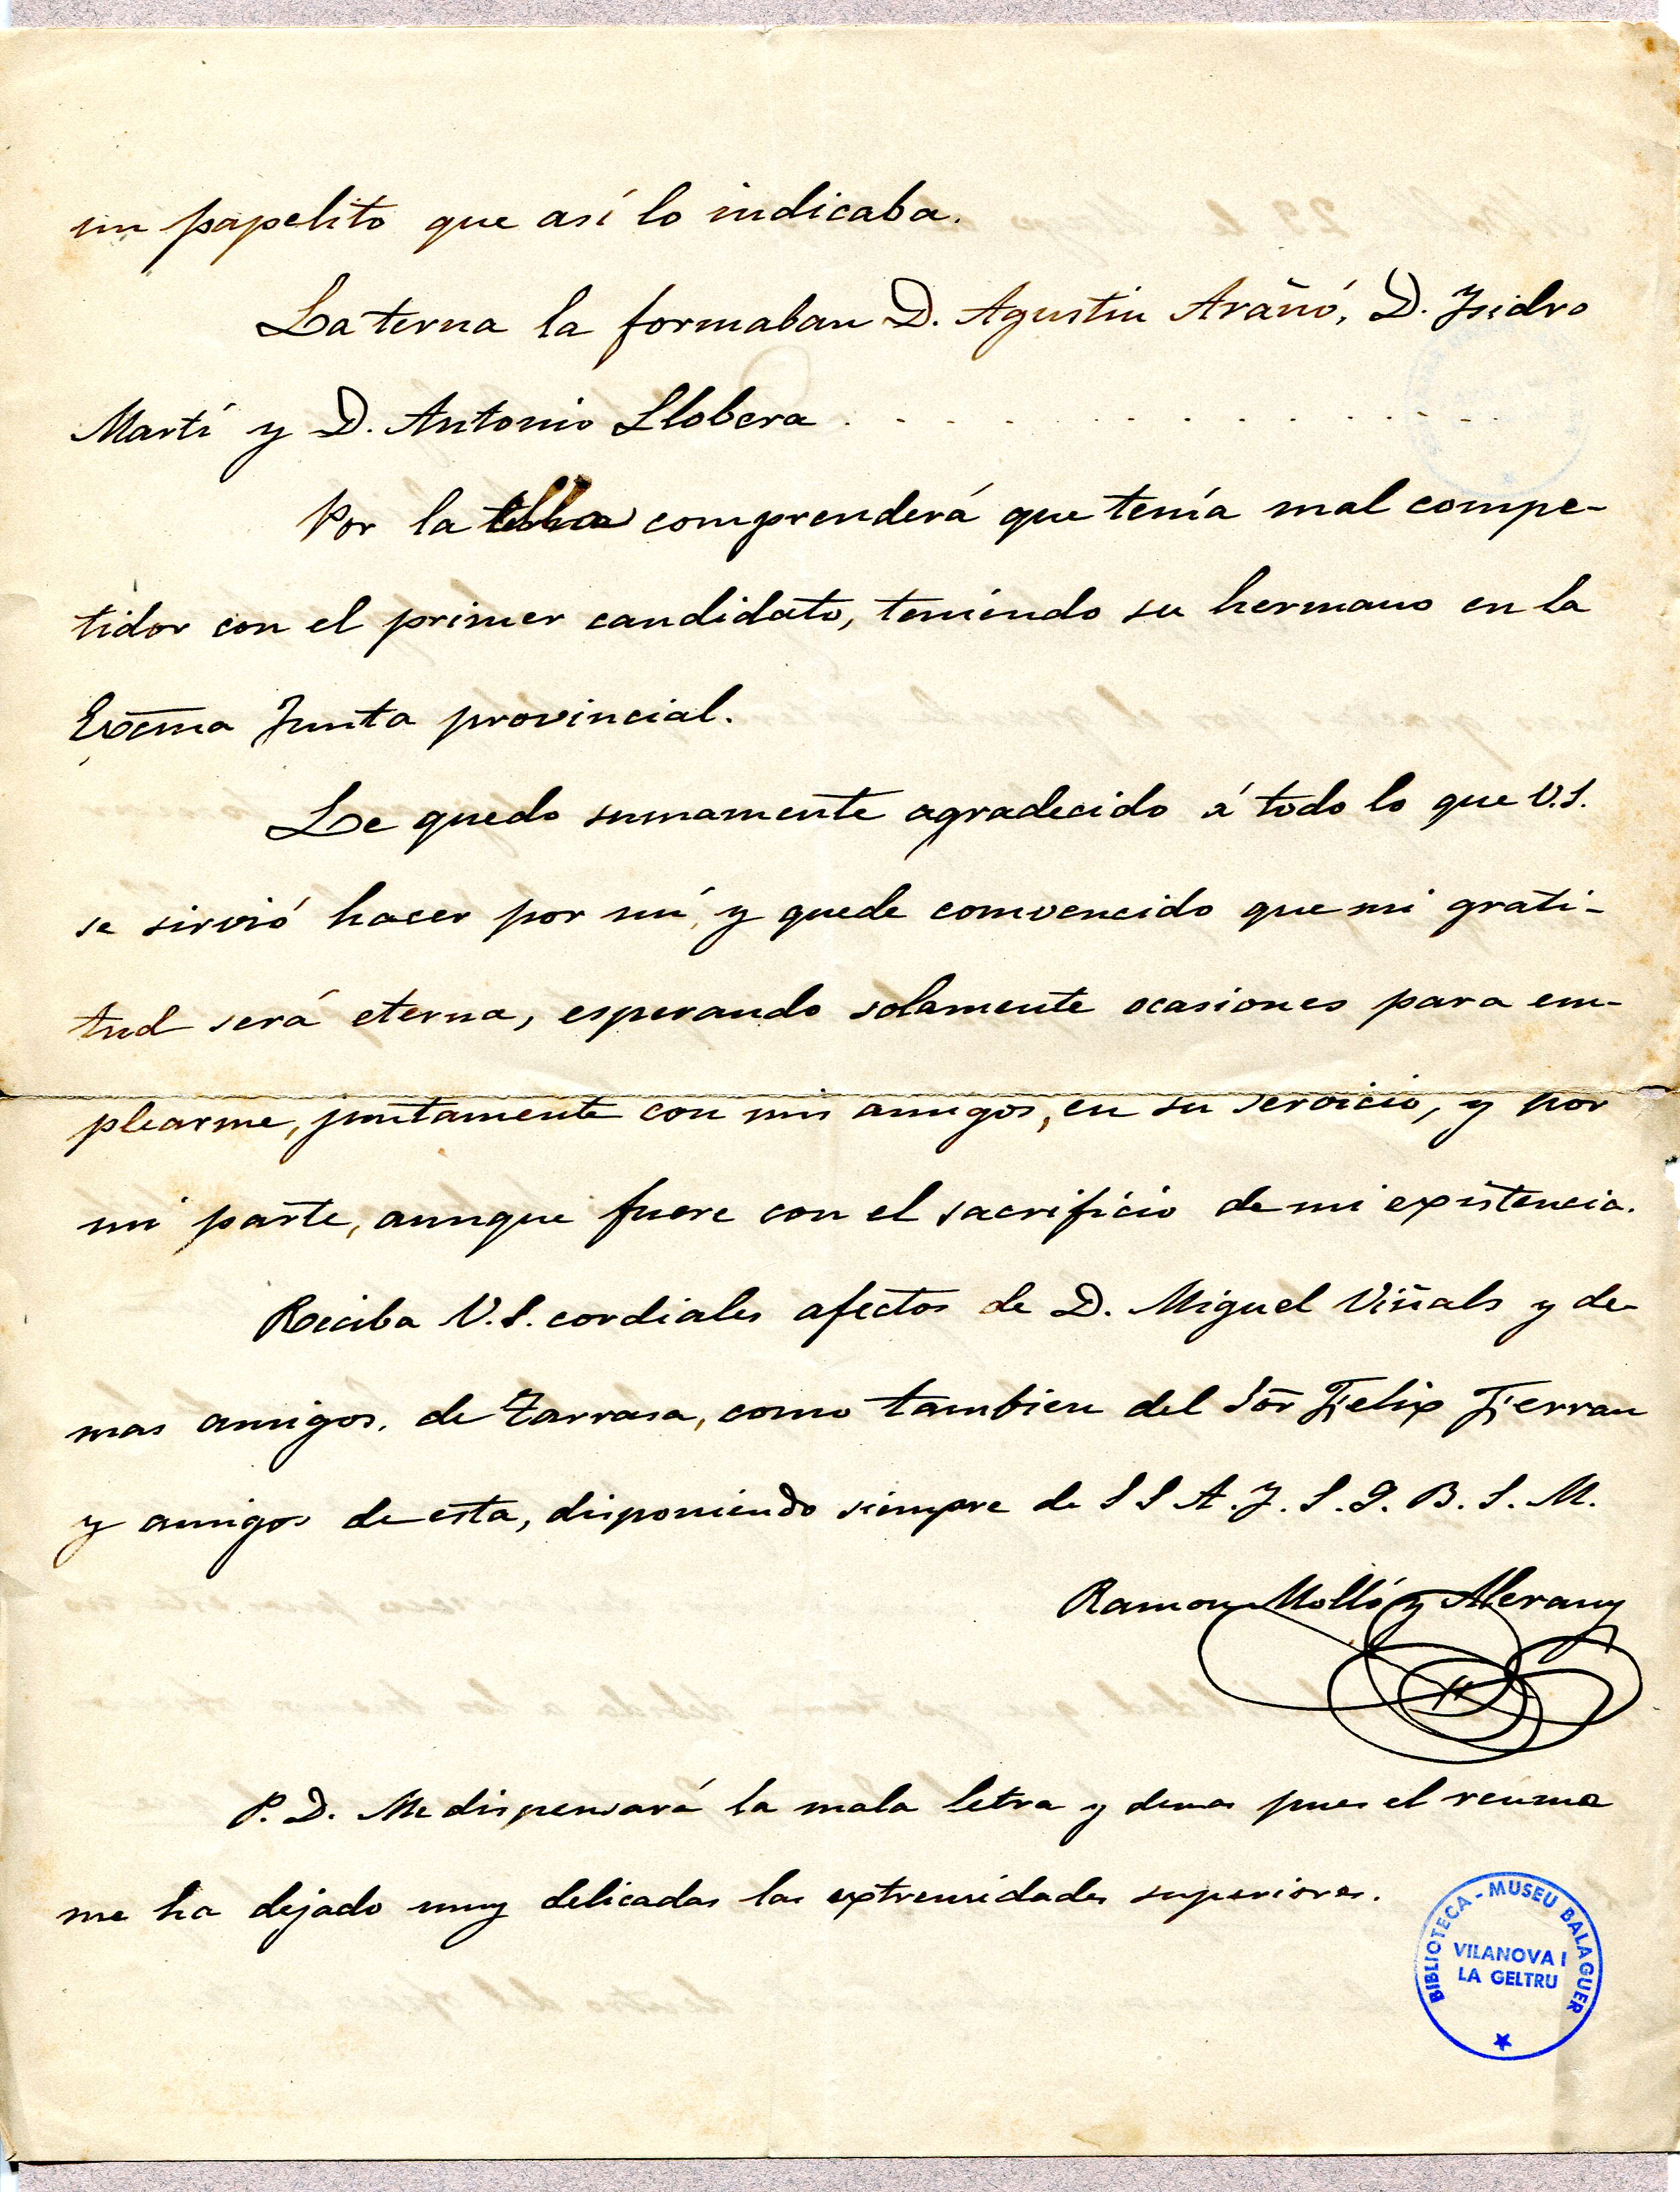 un papelito que así lo indicaba.
La terna la formaban D. Agustin Arañó, D. Isidro
Martí y D. Antonio Llobera . . . . . . . . . . . . .
Por la comprenderá que tenía mal compe-
tidor con el primer candidato, teniendo su hermano en la
Excma Junta provincial.
Le quedo sumamente agradecido á todo lo que V.S.
se sirvió hacer por mí, y quede comvencido que mi grati-
tud será eterna, esperando solamente ocasiones para em-
plearme, juntamente con mis amigos, en su servicio, y por
mi parte, aunque fuere con el sacrificio de mi existencia.
Reciba V.S. cordiales afectos de D. Miguel Viñals y de-
mas amigos, de Tarrasa, como tambien del Sor Felix Ferran
y amigos de esta, disponiendo siempre de S S A. J. S. Q. B. S. M.
Ramon Molló y Alerany
P. D. Me dispensará la mala letra y demas pues el reuma
me ha dejado muy delicadas las extremidades superiores.
BIBLIOTECA - MUSEU BALAGUER
VILANOVA I
LA GELTRU